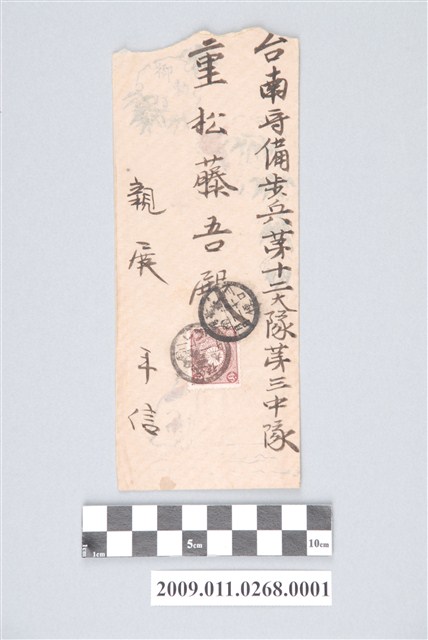 台南守備歩兵第十二大隊第三中隊
重松藤吾殿
親展 平信
1cm 5cm 10cm
2009.011.0268.0001